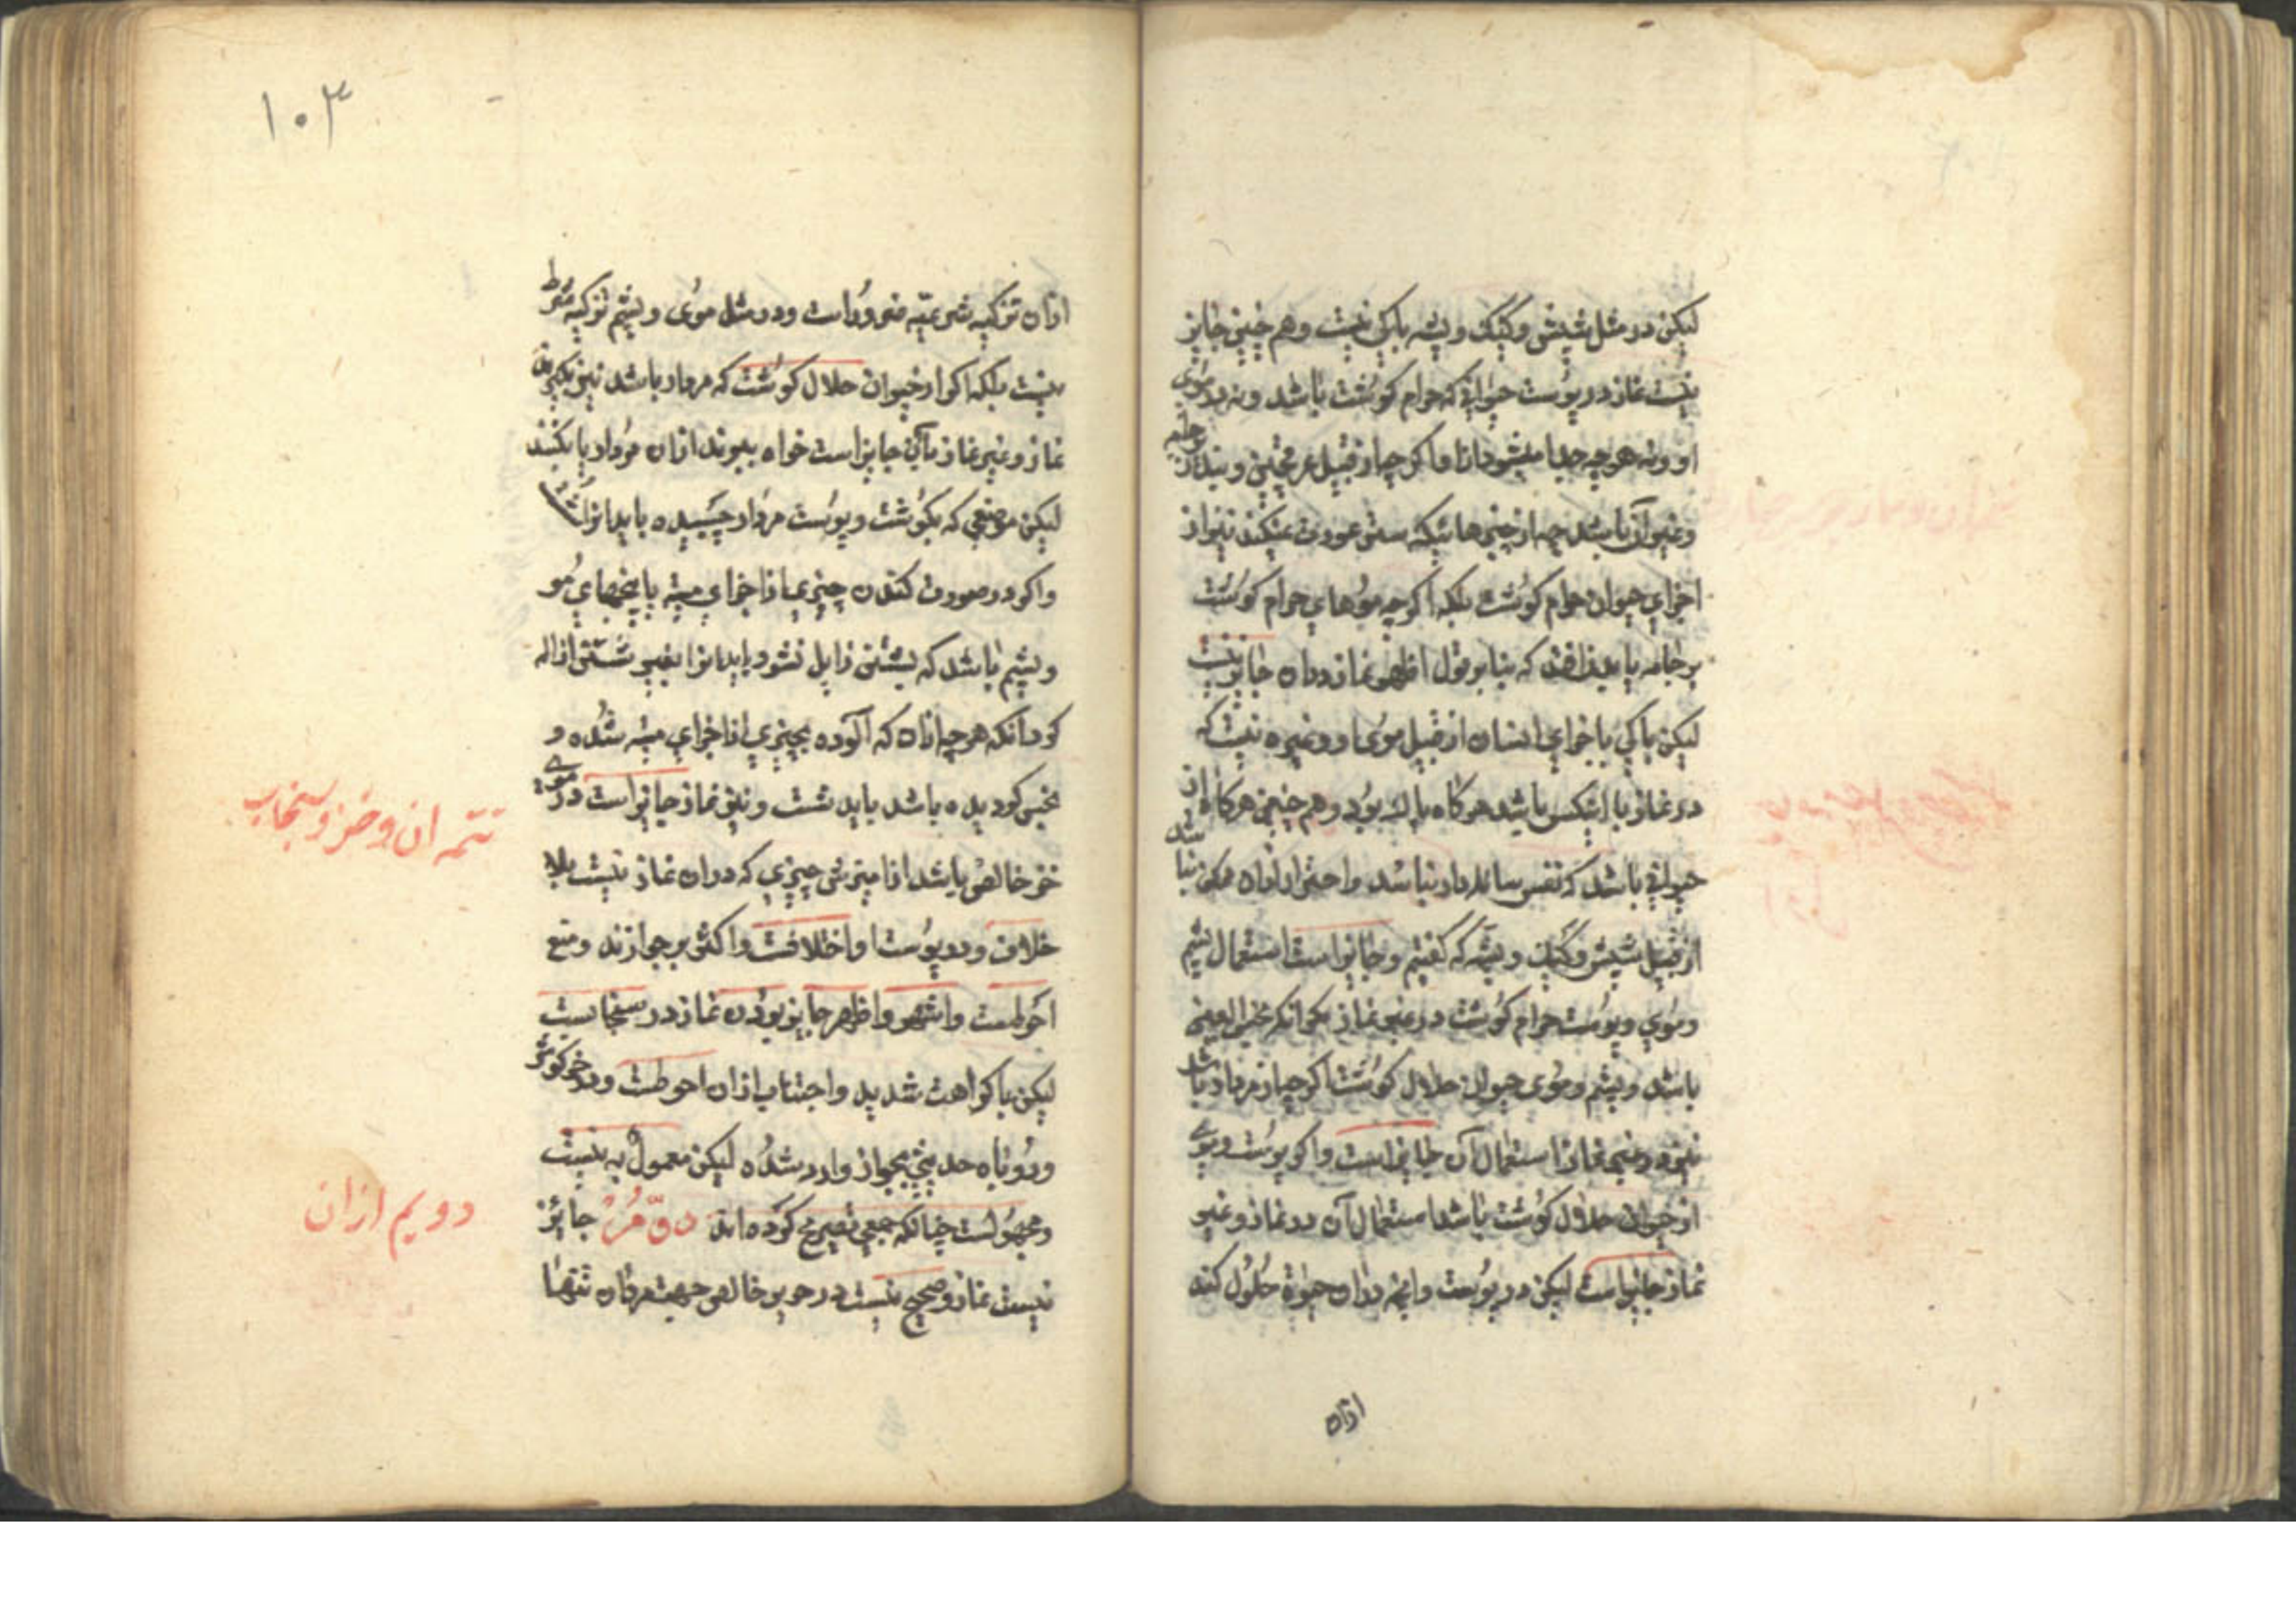 لیکن در مثل شپش و کیک و پشه باکی نیست و هم چنین جایز
نیست نماز در پوست حیوانی که حرام گوشت باشد و نه در موی
او و نه هر چه جدا میشود از او اگر چه از قبیل عرق چین و بند از جامه
و غیر آن باشد چه از چیزهائیکه ستر عورت نمیکند نیز از
اجزای حیوان حرام گوشت بلکه اگر چه موهای حرام گوشت
بر جامه یا بدن افتد که بنا بر قول اظهر نماز در ان جایز نیست
لیکن باکی باجزای انسان از قبیل موی او و غیره نیست که
در نماز با انکس باشد هر گاه پاک بود و هم چنین هر گاه از
حیوانی باشد که نفس سائله دار نباشد و احتراز از ان ممکن نباشد
از قبیل شپش و کیک و پشه که گفتیم و جایز است استعمال پشم
و موی و پوست حرام گوشت در غیر نماز مگر انکه نجس العین
باشد و پشم و موی حیوان حلال گوشت اگر چه از مردار باشد
نیز در غیر نماز استعمال آن جایز است و اگر پوست و موی
از حیوان حلال گوشت باشد استعمال آن در نماز و غیر
نماز جایز است لیکن در پوست و انچه در ان حیوة حلول کند
ازان
۱۰۳
ازان تزکیه شرعیه ضرور است و در مثل موی و پشم تزکیه شرط
نیست بلکه اگر از حیوان حلال گوشت که مردار باشد نیز بگیرند
نماز و غیر نماز بآن جایز است خواه ببرند ازان مردار یا بکنند
لیکن موضعی که بگوشت و پوست مردار چسبیده باید انرا شست
و اگر در صورت کندن چیزی از اجزای میته با بیخهای مو
و پشم باشد که بشستن زایل نشود باید انرا بغیر شستن ازاله
کرد انکه هر چه ازان که آلوده بچیزی از اجزای میته شده و
نجس گردیده باشد باید شست و نیز نماز جایز است در موی
خز خالص باشد از امیزش چیزی که در ان نماز نیست بلا
خلاف و در پوست او اختلافست و اکثر بر جوازند و منع
احوطست و اشهر و اظهر جایز بودن نماز در سنجابست
لیکن با کراهت شدید و اجتناب ازان احوطست و در خرگوش
و روباه حدیثی بجواز وارد شده لیکن معمول به نیست
و مهجورست چنانکه جمعی تصریح کرده اند جایز
نیست نماز و صحیح نیست در حریر خالص جهت مردان تنها
تتمه ان و خز و سنجاب
دویم ازان